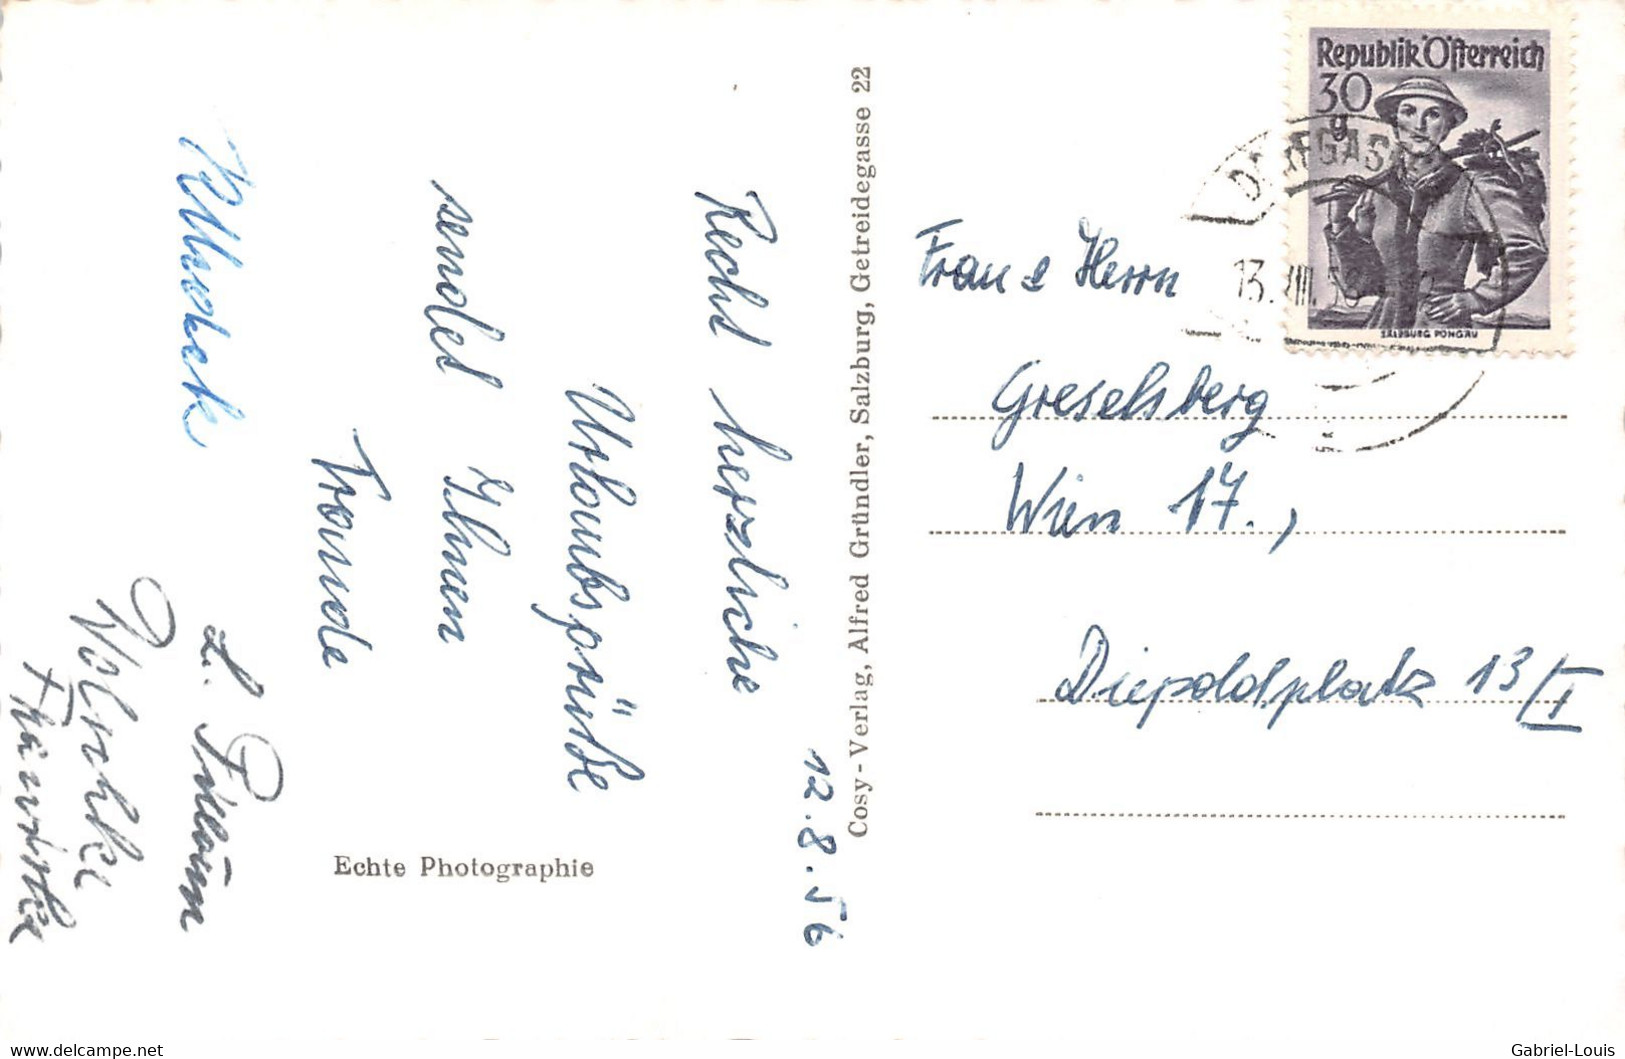 12.8.56
Recht herzliche
Urlaubsgrüße
sendet Ihnen
Traude
Echte Photographie
Cosy-Verlag, Alfred Gründler, Salzburg, Getreidegasse 22
Republik Österreich
30
g
SALZBURG PONGAU
13.VIII.56
Frau & Herrn
Greselsberg
Wien 17.,
Diepoldplatz 13/I
www.delcampe.net
Gabriel-Louis